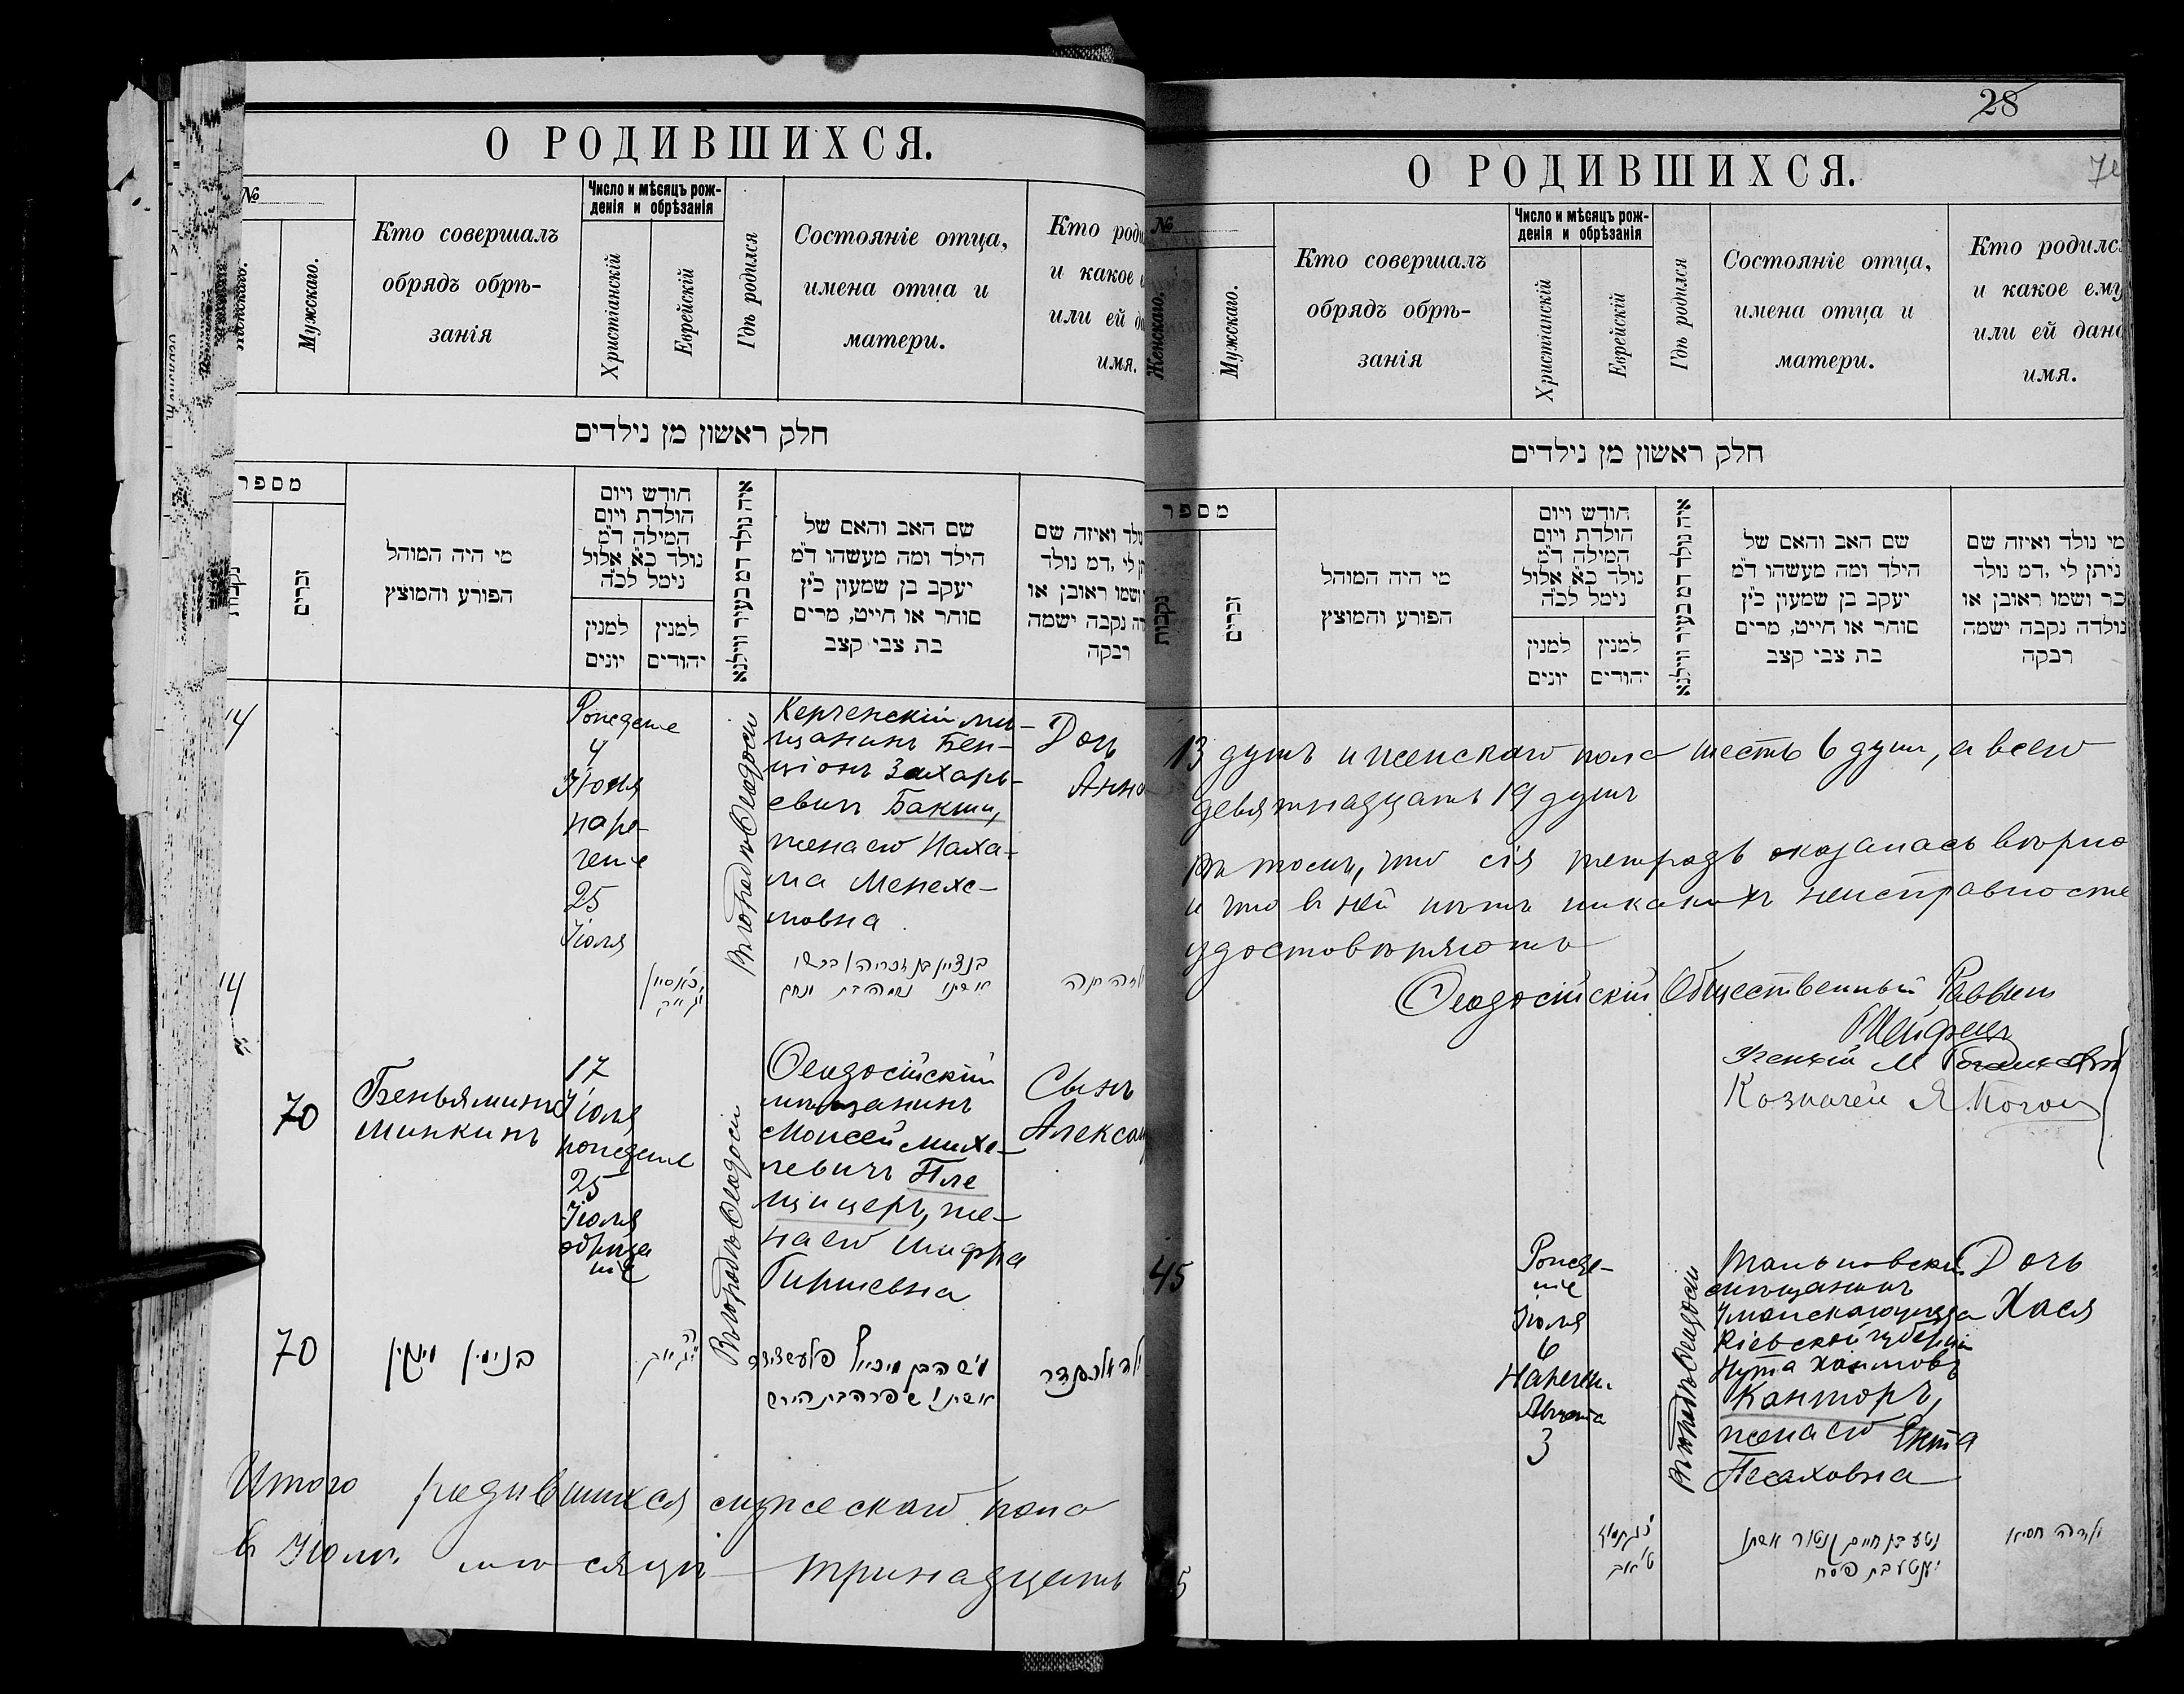 О РОДИВШИХСЯ.
№
Мужскаго.
Кто совершалъ
обрядъ обрѣ-
занія
Число и мѣсяцъ рож-
денія и обрѣзанія
Христіанскій
Еврейскій
Гдѣ родился
Состояніе отца,
имена отца и
матери.
Кто роди
и какое
или ей
имя.
חלק ראשון מן נילדים
מספר
נקבות
זכרים
מי היה המוהל
הפורע והמוצץ
חודש ויום
הולדת ויום
המילה ד״מ
נולד כ״א אלול
נימל לכ״ה
למנין
יונים
למנין
יהודים
איה נולד דמ בעיר ווילנא
שם האב והאם של
הילד ומה מעשהו ד״מ
יעקב בן שמעון כ״ץ
סוחר או חייט, מרים
בת צבי קצב
ולד ואיזה שם
לי, דמ נולד
ושמו ראובן או
נקבה ישמה
רבקה
Рожденіе
4
Іюля
наре-
ченіе
25
Іюля
Въ городѣ Ѳеодосіи
Керченскій мѣ-
щанинъ Бен-
ціонъ Захарь-
евичъ Бакши,
жена его Наха-
ма Менехе-
мовна
Дочь
Анна
14
70
Беньяминъ
Минкинъ
17
Іюля
рожденіе
25
Іюля
обрѣза
ніе
Въ городѣ Ѳеодосіи
Ѳеодосійскій
мѣщанинъ
Моисей Михе-
левичъ Пле
щицеръ, же-
на его Шифра
Гиршевна
Сынъ
Алексан
70
בנימין מינקין
אשתו שפרה בת הירש
ילד אלכסנדר
Итого родившихся мужескаго пола
в Іюлѣ мѣсяцѣ тринадцать
28
О РОДИВШИХСЯ.
№
Женскаго.
Мужскаго.
Кто совершалъ
обрядъ обрѣ-
занія
Число и мѣсяцъ рож-
денія и обрѣзанія
Христіанскій
Еврейскій
Гдѣ родился
Состояніе отца,
имена отца и
матери.
Кто родилс
и какое ему
или ей дано
имя.
חלק ראשון מן נילדים
מספר
נקבות
זכרים
מי היה המוהל
הפורע והמוצץ
חודש ויום
הולדת ויום
המילה ד״מ
נולד כ״א אלול
נימל לכ״ה
למנין
יונים
למנין
יהודים
איה נולד דמ בעיר ווילנא
שם האב והאם של
הילד ומה מעשהו ד״מ
יעקב בן שמעון כ״ץ
סוחר או חייט, מרים
בת צבי קצב
מי נולד ואיזה שם
ניתן לי, דמ נולד
זכר ושמו ראובן או
נולדה נקבה ישמה
רבקה
13 душъ и женскаго пола шесть 6 душ, а всего
девятнадцать 19 душъ
Въ томъ, что сія тетрадь оказалась вѣрно
и что в ней нѣтъ никакихъ неисправносте
удостовѣряютъ
Ѳеодосійскій Общественный Раввинъ
Ученый М
Казначей Я. Коган
45
Рожде-
ніе
Іюля
6
Нарече.
Августа
3
Въ городѣ Ѳеодосіи
Тальновскій
мѣщанинъ
Уманскаго уѣзда
Кіевской губерніи
Нута Хаимовъ
Канторъ,
жена его Ента
Песаховна
Дочь
Хася
נטע בן חיים קנטור אשתו
יענטע בת פסח
ילדה חסיא